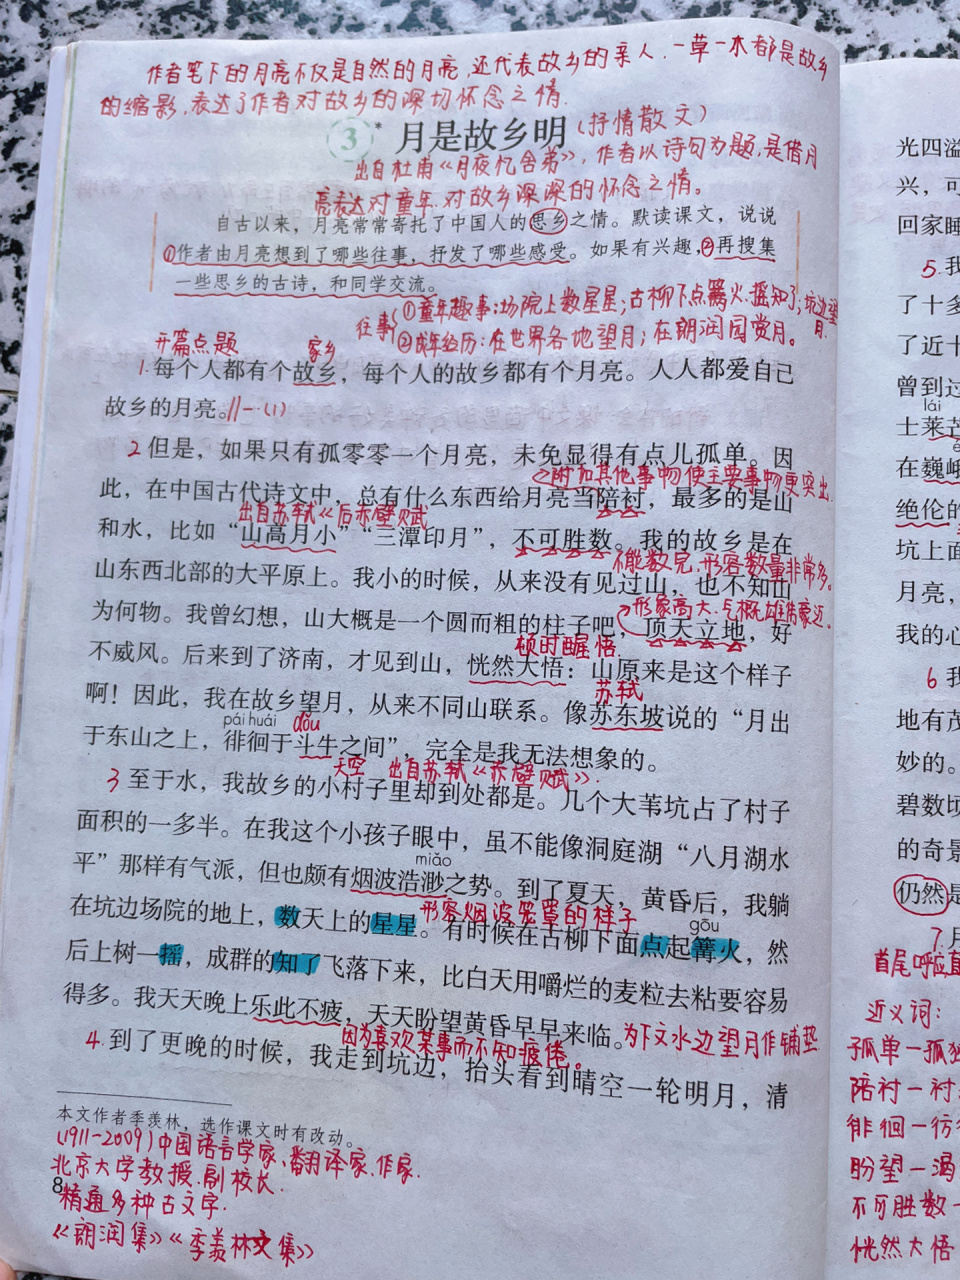 作者笔下的月亮不仅是自然的月亮,还代表故乡的亲人.一草一木都是故乡
的缩影,表达了作者对故乡的深切怀念之情.
3* 月是故乡明(抒情散文)
出自杜甫《月夜忆舍弟》,作者以诗句为题,是借月
亮表达对童年.对故乡深深的怀念之情。
自古以来,月亮常常寄托了中国人的思乡之情。默读课文,说说
①作者由月亮想到了哪些往事,抒发了哪些感受。如果有兴趣,②再搜集
一些思乡的古诗,和同学交流。
往事
①童年趣事:场院上数星星;古柳下点篝火.摇知了;坑边望月.
②成年经历:在世界各地望月;在朗润园赏月。
开篇点题 家乡
1.每个人都有个故乡,每个人的故乡都有个月亮。人人都爱自己
故乡的月亮。//一.(1)
2但是,如果只有孤零零一个月亮,未免显得有点儿孤单。因
附加其他事物使主要事物更突出.
此,在中国古代诗文中,总有什么东西给月亮当陪衬,最多的是山
出自苏轼《后赤壁赋
和水,比如“山高月小”“三潭印月”,不可胜数。我的故乡是在
不能数完.形容数量非常多。
山东西北部的大平原上。我小的时候,从来没有见过山,也不知山
形象高大.气概雄伟豪迈.
为何物。我曾幻想,山大概是一个圆而粗的柱子吧,顶天立地,好
顿时醒悟
不威风。后来到了济南,才见到山,恍然大悟:山原来是这个样子
苏轼
啊!因此,我在故乡望月,从来不同山联系。像苏东坡说的“月出
pái huái dǒu
于东山之上,徘徊于斗牛之间”,完全是我无法想象的。
天空 出自苏轼《赤壁赋》.
3 至于水,我故乡的小村子里却到处都是。几个大苇坑占了村子
面积的一多半。在我这个小孩子眼中,虽不能像洞庭湖“八月湖水
miǎo
平”那样有气派,但也颇有烟波浩渺之势。到了夏天,黄昏后,我躺
形容烟波笼罩的样子
在坑边场院的地上,数天上的星星。有时候在古柳下面点起篝火,然
gōu
后上树一摇,成群的知了飞落下来,比白天用嚼烂的麦粒去粘要容易
得多。我天天晚上乐此不疲,天天盼望黄昏早早来临。为下文水边望月作铺垫
因为喜欢某事而不知疲倦。
4.到了更晚的时候,我走到坑边,抬头看到晴空一轮明月,清
本文作者季羡林,选作课文时有改动。
(1911-2009)中国语言学家、翻译家.作家.
北京大学教授.副校长.
8
精通多种古文字.
《朗润集》《季羡林文集》
光四溢
兴,可
回家睡
5.我
了十多
了近十
曾到过
lái
士莱芒
在巍峨
绝伦的
坑上面
月亮,
我的心
6 我
地有茂
妙的。
碧数顷
的奇景
仍然是
7.月
首尾呼应
近义词:
孤单一孤独
陪衬一衬
徘徊一彷
盼望一渴
不可胜数一
恍然大悟